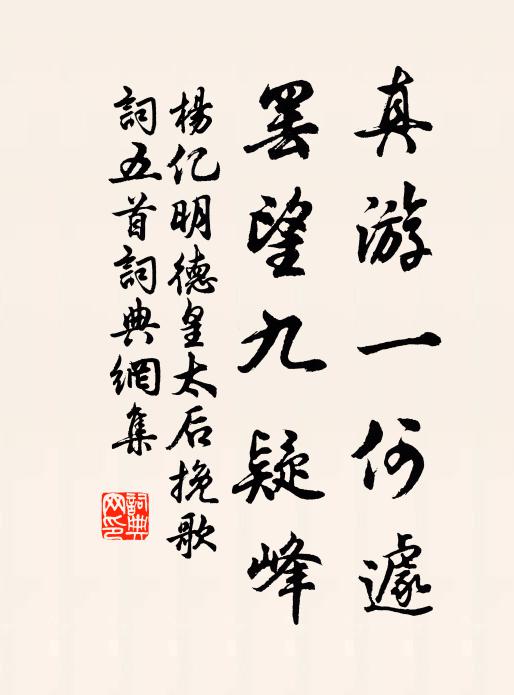 真游一何遽
罢望九疑峰
楊亿明德皇太后挽歌
詞五首詞典網集
詞典网印